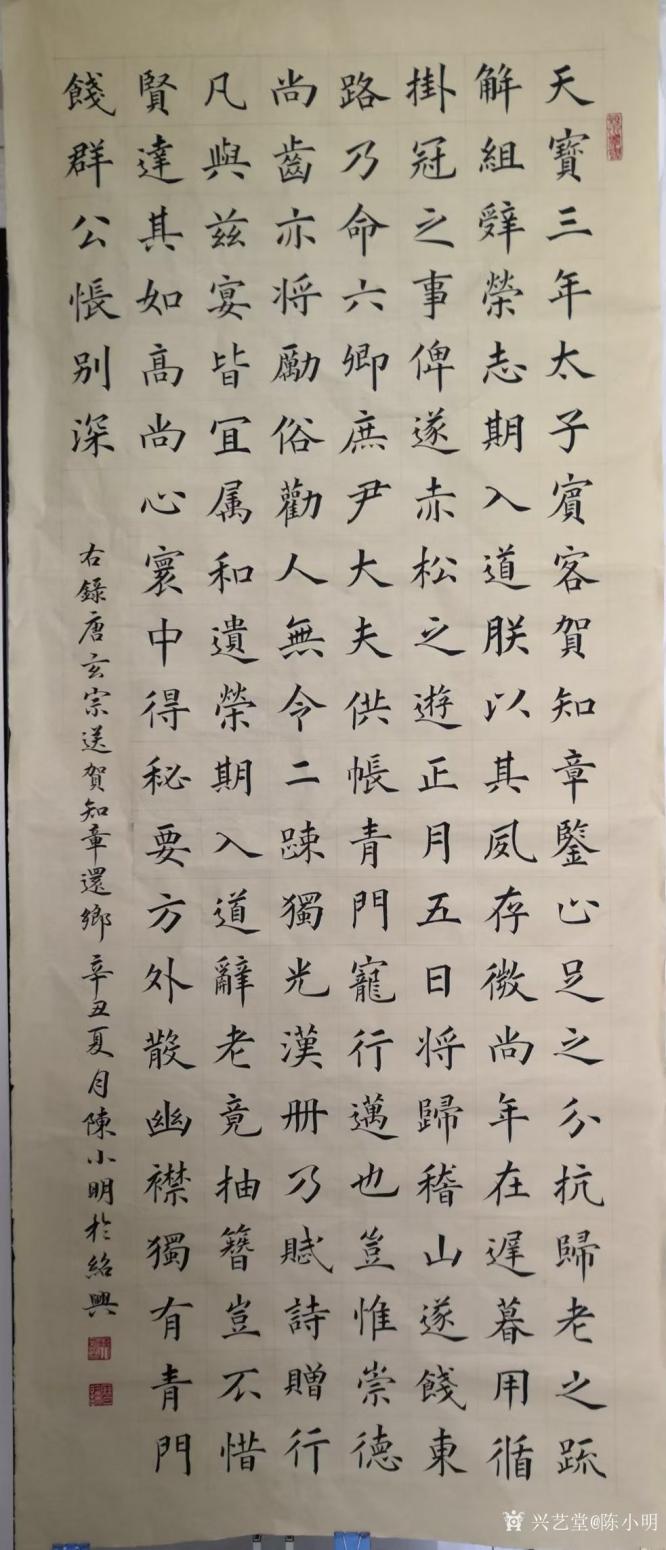 天寶三年太子賓客賀知章鑒止足之分抗歸老之疏
解組辤榮志期入道朕以其夙存微尚年在遲暮用循
掛冠之事俾遂赤松之遊正月五日将歸稽山遂餞東
路乃命六卿庶尹大夫供帳青門寵行邁也豈惟崇德
尚齒亦将勵俗勸人無令二踈獨光漢冊乃賦詩贈行
凡與兹宴皆宜属和遺榮期入道辭老竟抽簪豈不惜
賢達其如高尚心寰中得秘要方外散幽襟獨有青門
餞群公悵别深
右錄唐玄宗送賀知章還鄉辛丑夏月陳小明於紹興
兴艺堂@陈小明